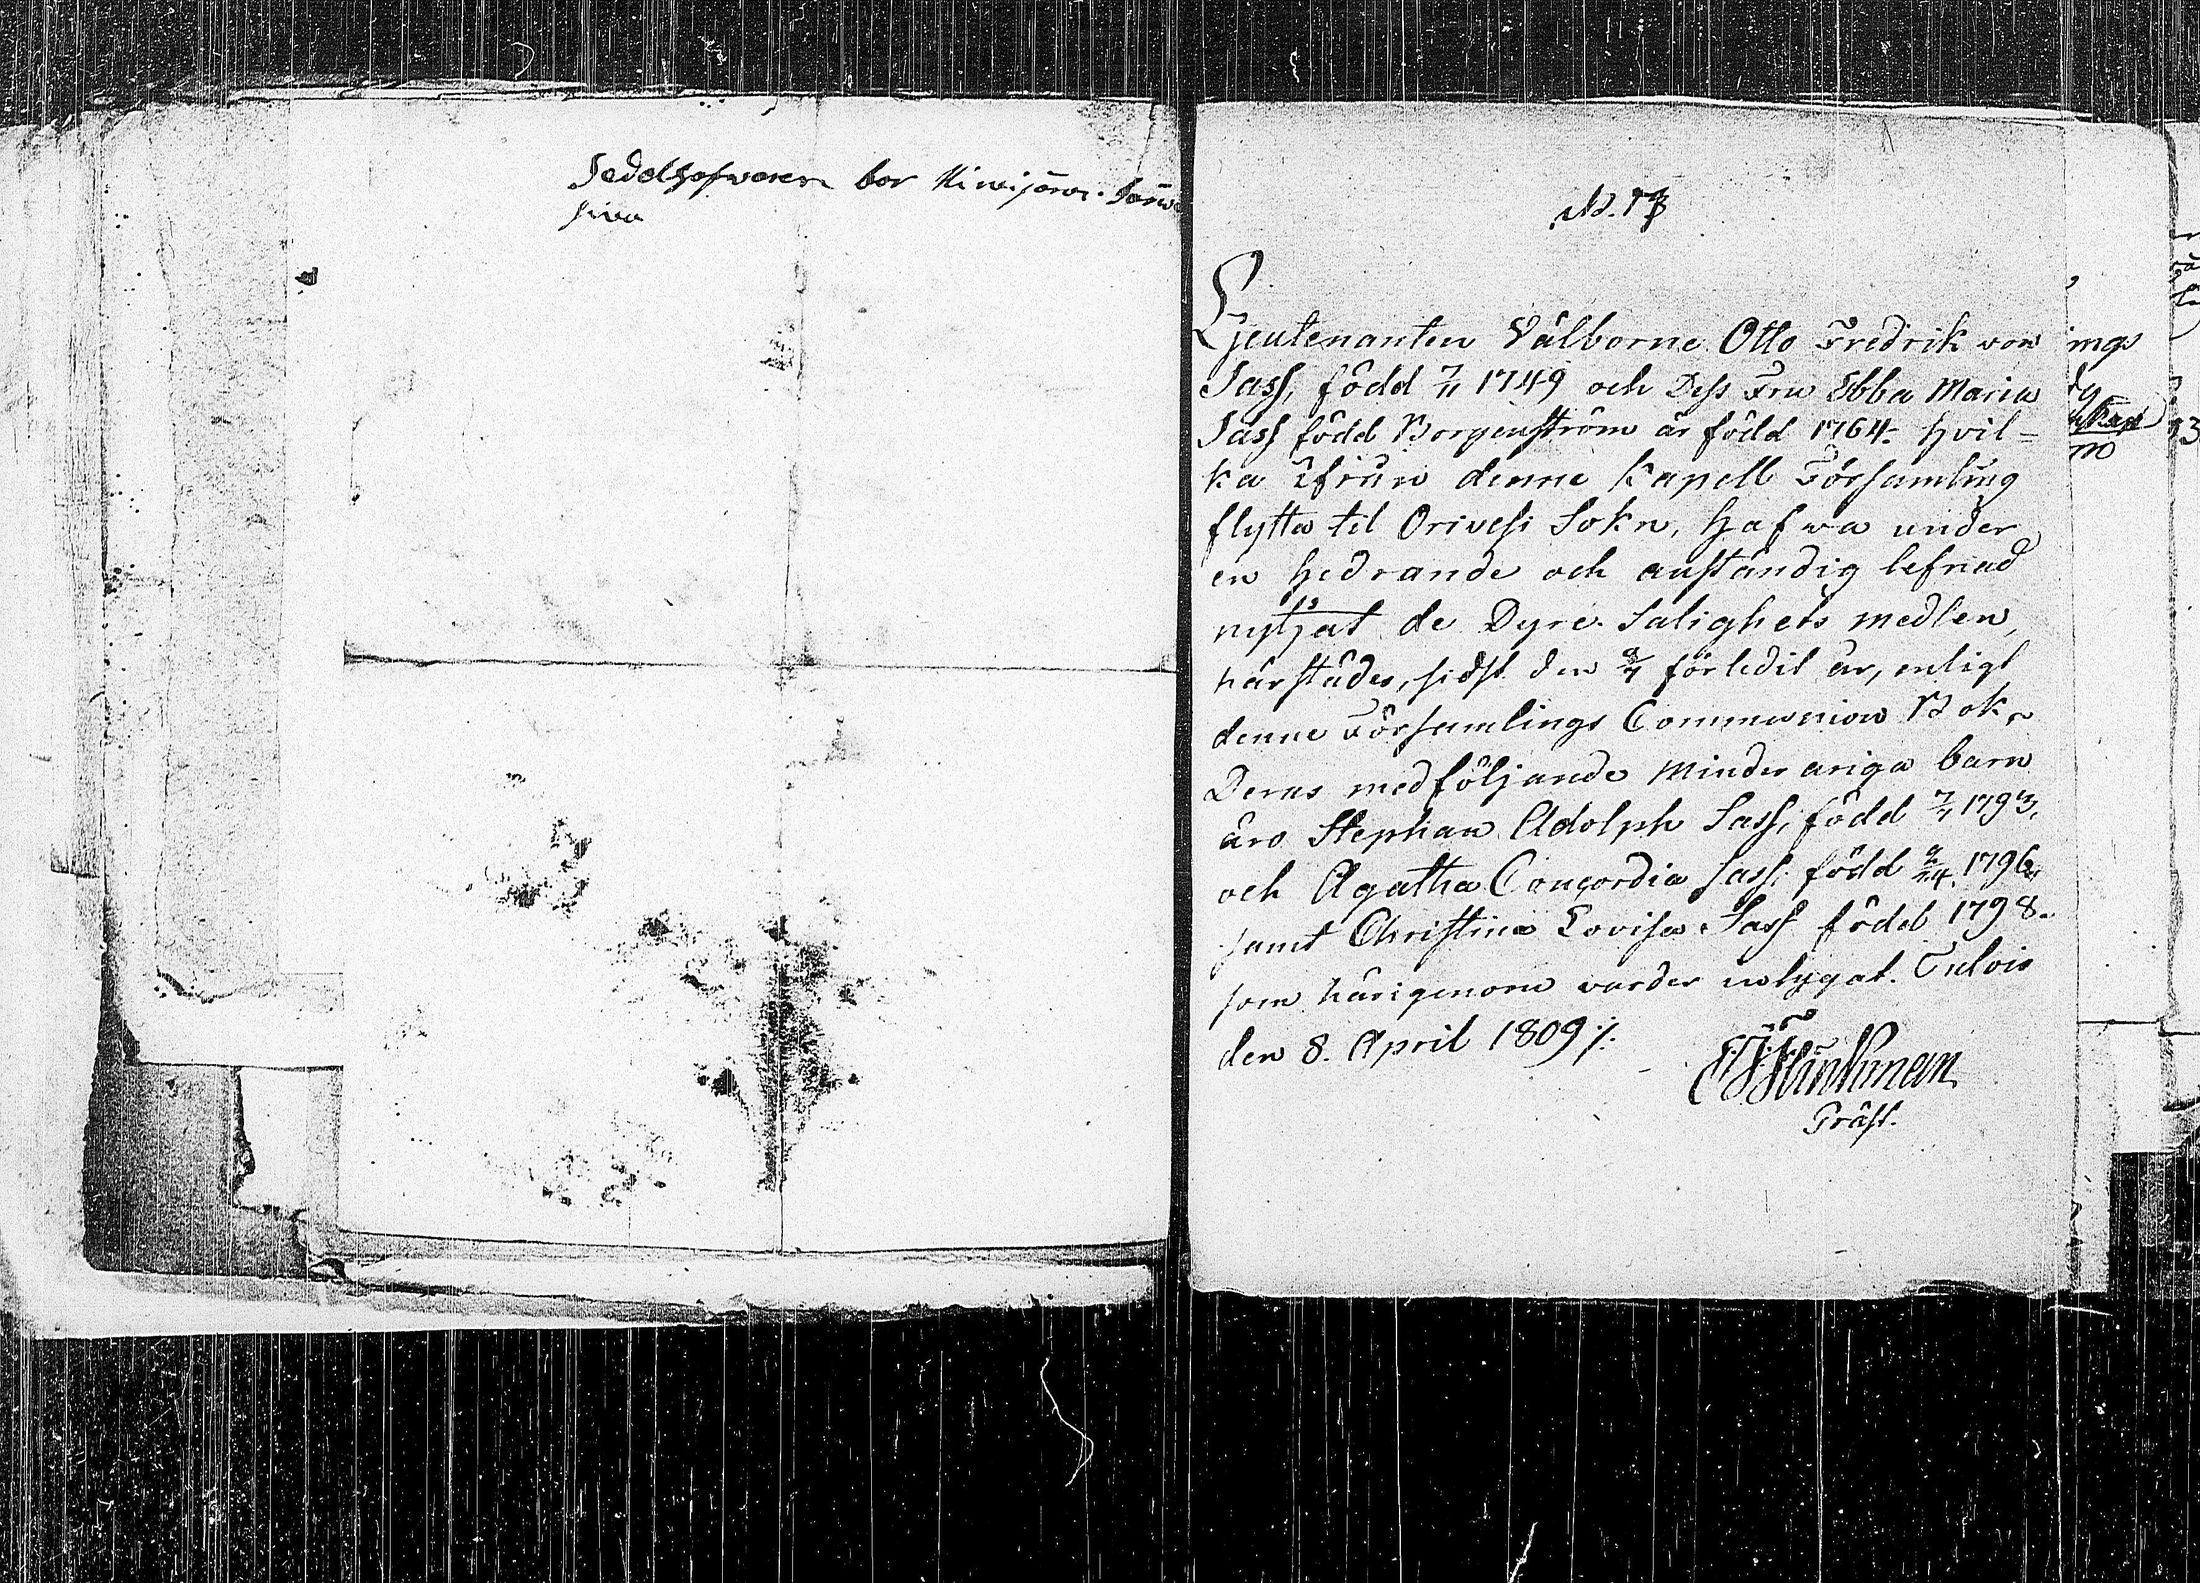 Sedelhafwaren bor Kirvijärvi
N. 13
Lieutenanten Välborne Otto Fredrik von
Sass, född 7/11 1749 och Dess Fru Ebba Maria
Sass född Borgenström är född 1764. hvil=
ka ifrån denne Kapell Församling
flytta til Orivesi Sokn, hafwa under
en hedrande och anständig lefnad
nyttjat de Dyre Salighets medlen,
härstädes, sidst den förledit år, enligt
denne Församlings Communion Bok.
Deras medföljande Minderariga barn
äro Stephan Adolph Sass, född 1793,
och Agatha Concordia Sass, född 1796
samt Christina Lovisa Sass född 1798.
som härigenom varder intygat. Tulois
den 8. April 1809 ./.
Präst.
ings